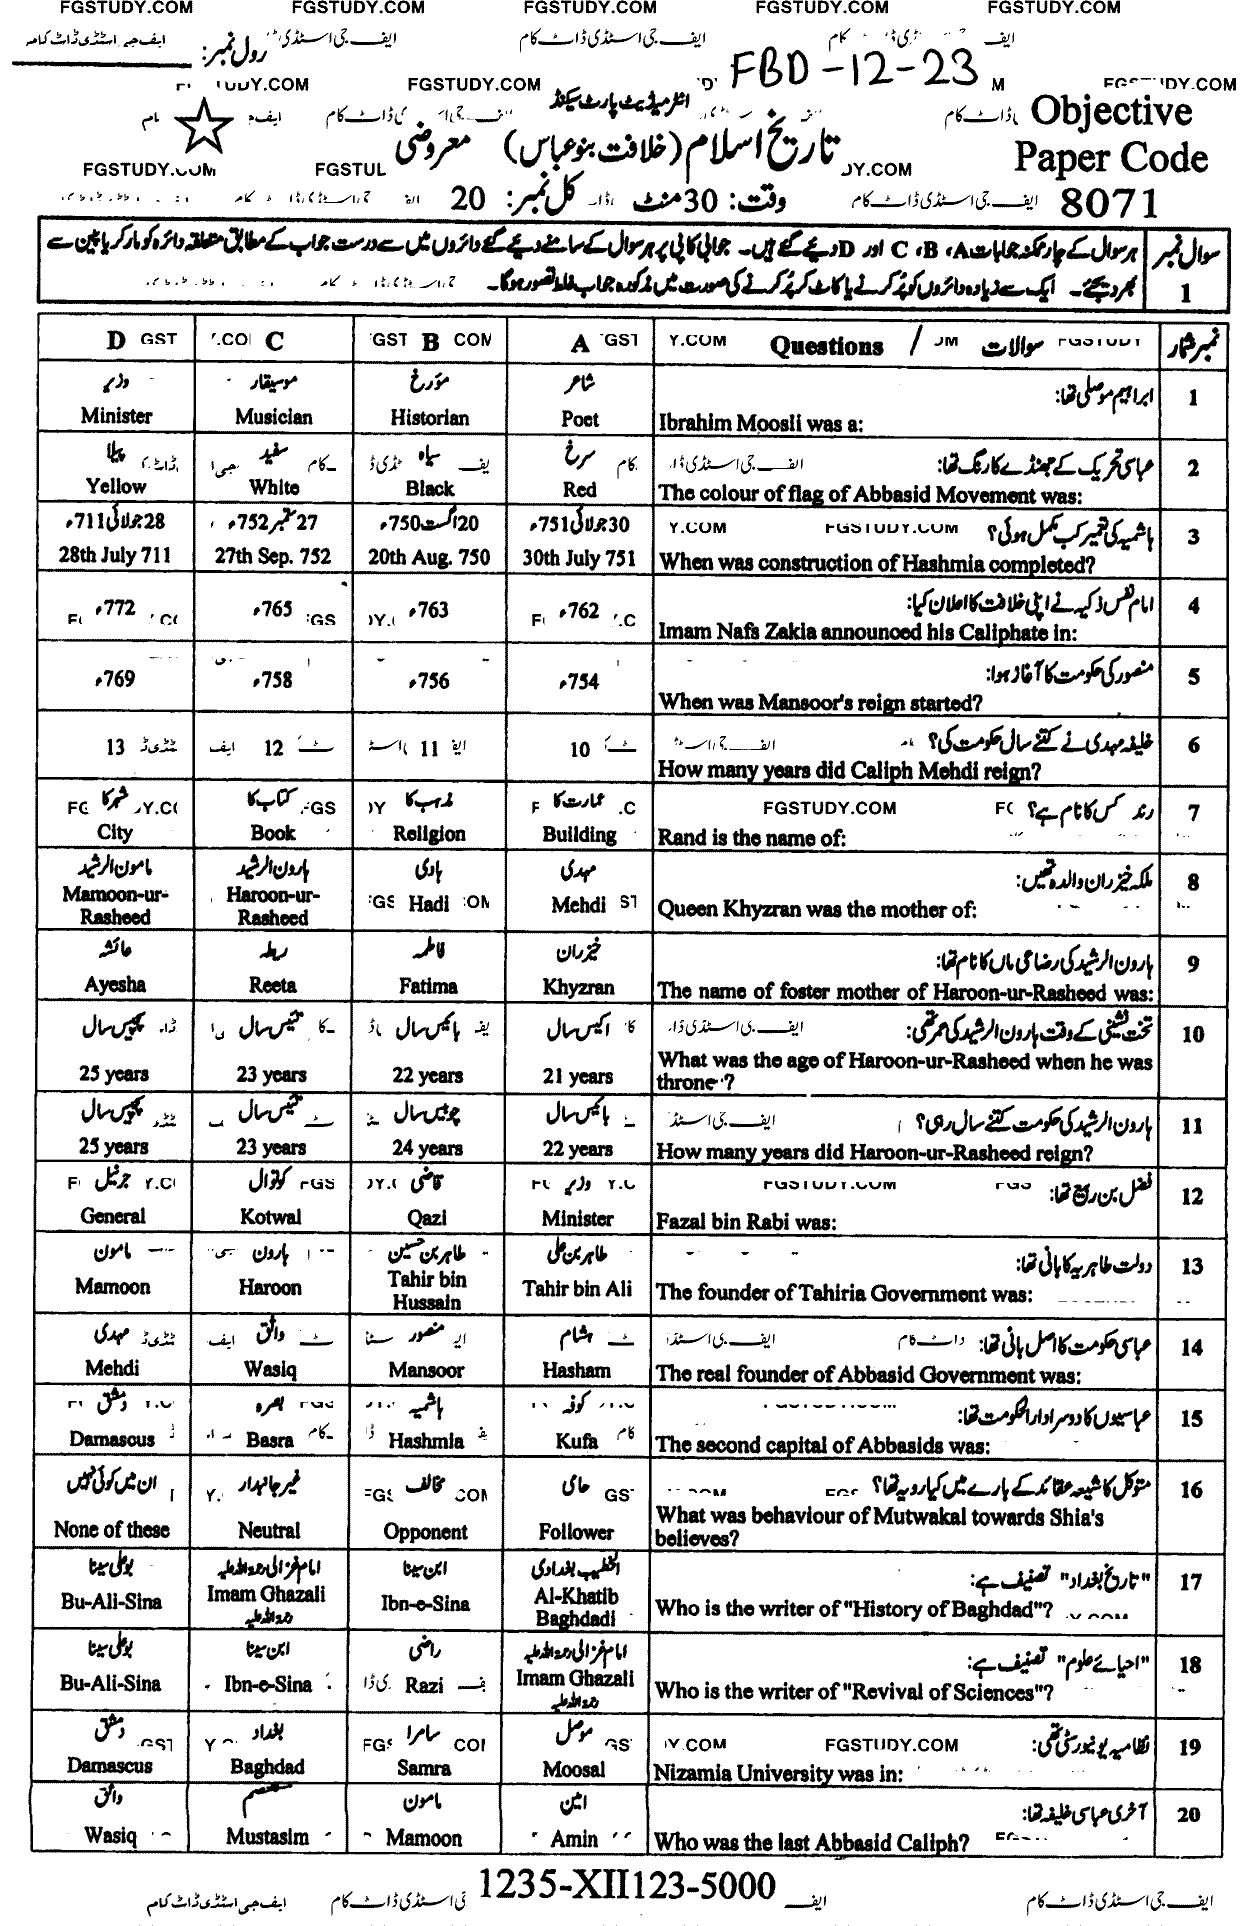 FGSTUDY.COM FGSTUDY.COM FGSTUDY.COM FGSTUDY.COM FGSTUDY.COM
رول نمبر:
FBD-12-23
انٹرمیڈیٹ پارٹ سیکنڈ
Objective
تاریخ اسلام (خلافت بنو عباس) معروضی
Paper Code
وقت: 30 منٹ کل نمبر: 20
8071
سوال نمبر 1
ہر سوال کے چار ممکنہ جوابات A، B، C اور D دیئے گئے ہیں۔ جوابی کاپی پر ہر سوال کے سامنے دیئے گئے دائروں میں سے درست جواب کے مطابق متعلقہ دائرہ کو مارکر یا پین سے
بھر دیجئے۔ ایک سے زیادہ دائروں کو پُر کرنے یا کاٹ کر پُر کرنے کی صورت میں مذکورہ جواب غلط تصور ہوگا۔
D C B A Questions / سوالات نمبر شمار
وزیر موسیقار مؤرخ شاعر ابراہیم موصلی تھا: 1
Minister Musician Historian Poet Ibrahim Moosli was a:
پیلا سفید سیاہ سرخ عباسی تحریک کے جھنڈے کا رنگ تھا: 2
Yellow White Black Red The colour of flag of Abbasid Movement was:
28 جولائی 711ء 27 ستمبر 752ء 20 اگست 750ء 30 جولائی 751ء ہاشمیہ کی تعمیر کب مکمل ہوئی؟ 3
28th July 711 27th Sep. 752 20th Aug. 750 30th July 751 When was construction of Hashmia completed?
772ء 765ء 763ء 762ء امام نفس ذکیہ نے اپنی خلافت کا اعلان کیا: 4
Imam Nafs Zakia announced his Caliphate in:
769ء 758ء 756ء 754ء منصور کی حکومت کا آغاز ہوا: 5
When was Mansoor's reign started?
13 12 11 10 خلیفہ مہدی نے کتنے سال حکومت کی؟ 6
How many years did Caliph Mehdi reign?
شہر کا کتاب کا مذہب کا عمارت کا رند کس کا نام ہے؟ 7
City Book Religion Building Rand is the name of:
مامون الرشید ہارون الرشید ہادی مہدی ملکہ خیزران والدہ تھیں: 8
Mamoon-ur-Rasheed Haroon-ur-Rasheed Hadi Mehdi Queen Khyzran was the mother of:
عائشہ ریطہ فاطمہ خیزران ہارون الرشید کی رضاعی ماں کا نام تھا: 9
Ayesha Reeta Fatima Khyzran The name of foster mother of Haroon-ur-Rasheed was:
پچیس سال تئیس سال بائیس سال اکیس سال تخت نشینی کے وقت ہارون الرشید کی عمر تھی: 10
25 years 23 years 22 years 21 years What was the age of Haroon-ur-Rasheed when he was
throne ?
پچیس سال تئیس سال چوبیس سال بائیس سال ہارون الرشید کی حکومت کتنے سال رہی؟ 11
25 years 23 years 24 years 22 years How many years did Haroon-ur-Rasheed reign?
جرنیل کوتوال قاضی وزیر فضل بن ربیع تھا: 12
General Kotwal Qazi Minister Fazal bin Rabi was:
مامون ہارون طاہر بن حسین طاہر بن علی دولت طاہریہ کا بانی تھا: 13
Mamoon Haroon Tahir bin Hussain Tahir bin Ali The founder of Tahiria Government was:
مہدی واثق منصور ہشام عباسی حکومت کا اصل بانی تھا: 14
Mehdi Wasiq Mansoor Hasham The real founder of Abbasid Government was:
دمشق بصرہ ہاشمیہ کوفہ عباسیوں کا دوسرا دارالحکومت تھا: 15
Damascus Basra Hashmia Kufa The second capital of Abbasids was:
ان میں کوئی نہیں غیر جانبدار مخالف حامی متوکل کا شیعہ عقائد کے بارے میں کیا رویہ تھا؟ 16
None of these Neutral Opponent Follower What was behaviour of Mutwakal towards Shia's
believes?
بوعلی سینا امام غزالی رحمۃ اللہ علیہ ابن سینا الخطیب بغدادی "تاریخ بغداد" تصنیف ہے: 17
Bu-Ali-Sina Imam Ghazali رحمۃ اللہ علیہ Ibn-e-Sina Al-Khatib Baghdadi Who is the writer of "History of Baghdad"?
بوعلی سینا ابن سینا راضی امام غزالی رحمۃ اللہ علیہ "احیائے علوم" تصنیف ہے: 18
Bu-Ali-Sina Ibn-e-Sina Razi Imam Ghazali رحمۃ اللہ علیہ Who is the writer of "Revival of Sciences"?
دمشق بغداد سامرا موصل نظامیہ یونیورسٹی تھی: 19
Damascus Baghdad Samra Moosal Nizamia University was in:
واثق مستعصم مامون امین آخری عباسی خلیفہ تھا: 20
Wasiq Mustasim Mamoon Amin Who was the last Abbasid Caliph?
1235-XII123-5000